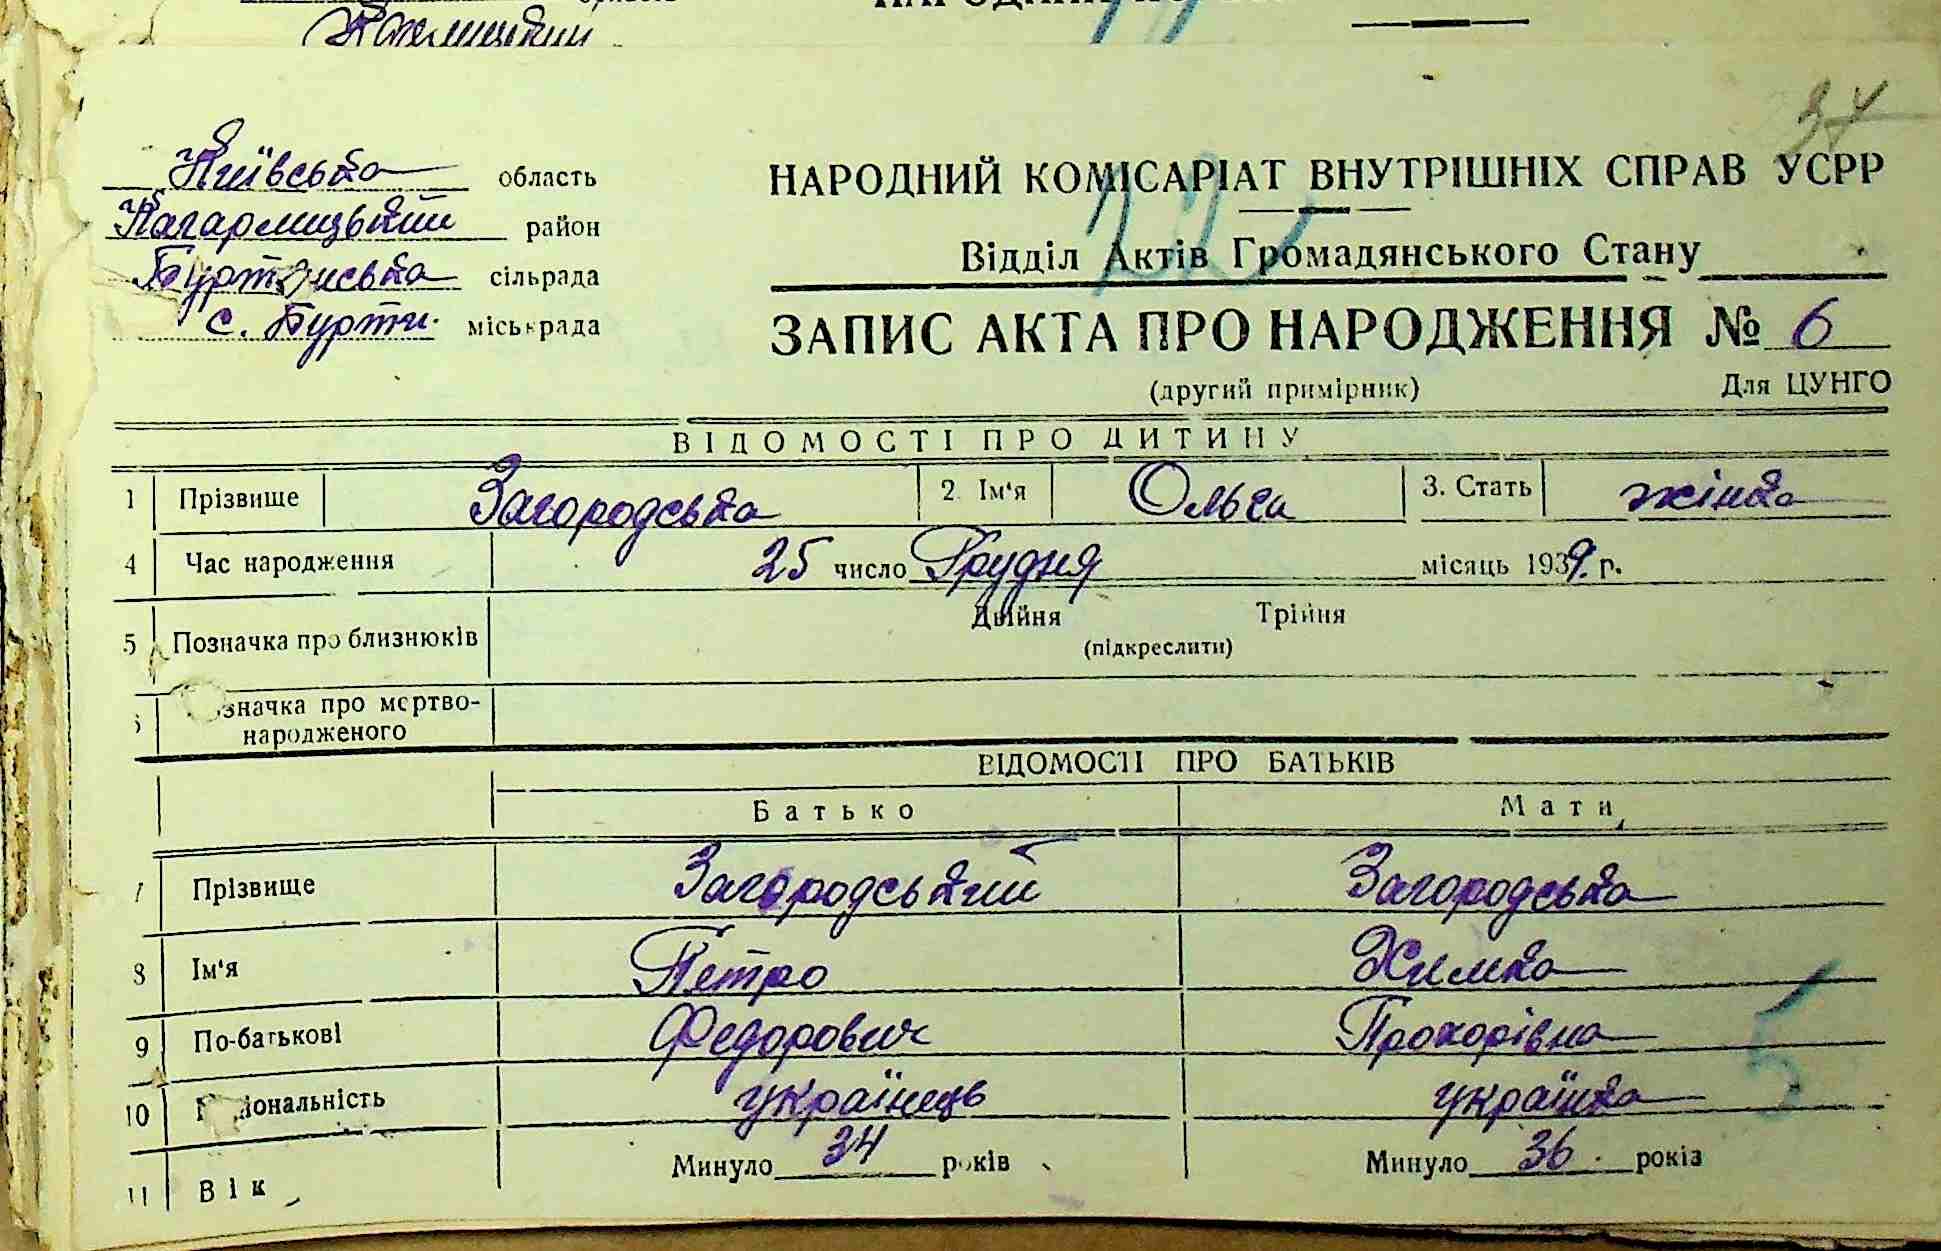 Київська область
Кагарлицький район
Буртянська сільрада
с. Бурти. міськрада
34
НАРОДНИЙ КОМІСАРІАТ ВНУТРІШНІХ СПРАВ УСРР
Відділ Актів Громадянського Стану
ЗАПИС АКТА ПРО НАРОДЖЕННЯ № 6
(другий примірник) Для ЦУНГО
ВІДОМОСТІ ПРО ДИТИНУ
1 Прізвище Загородська 2. Ім'я Ольга 3. Стать жінка
4 Час народження 25 число Грудня місяць 1939. р.
5 Позначка про близнюків Двійня Трійня
(підкреслити)
значка про мертво-
народженого
ВІДОМОСТІ ПРО БАТЬКІВ
Батько Мати
7 Прізвище Загородський Загородська
8 Ім'я Петро Химка
9 По-батькові Федорович Прохорівна
10 Національність українець українка
11 Вік Минуло 34 років Минуло 36. років
5